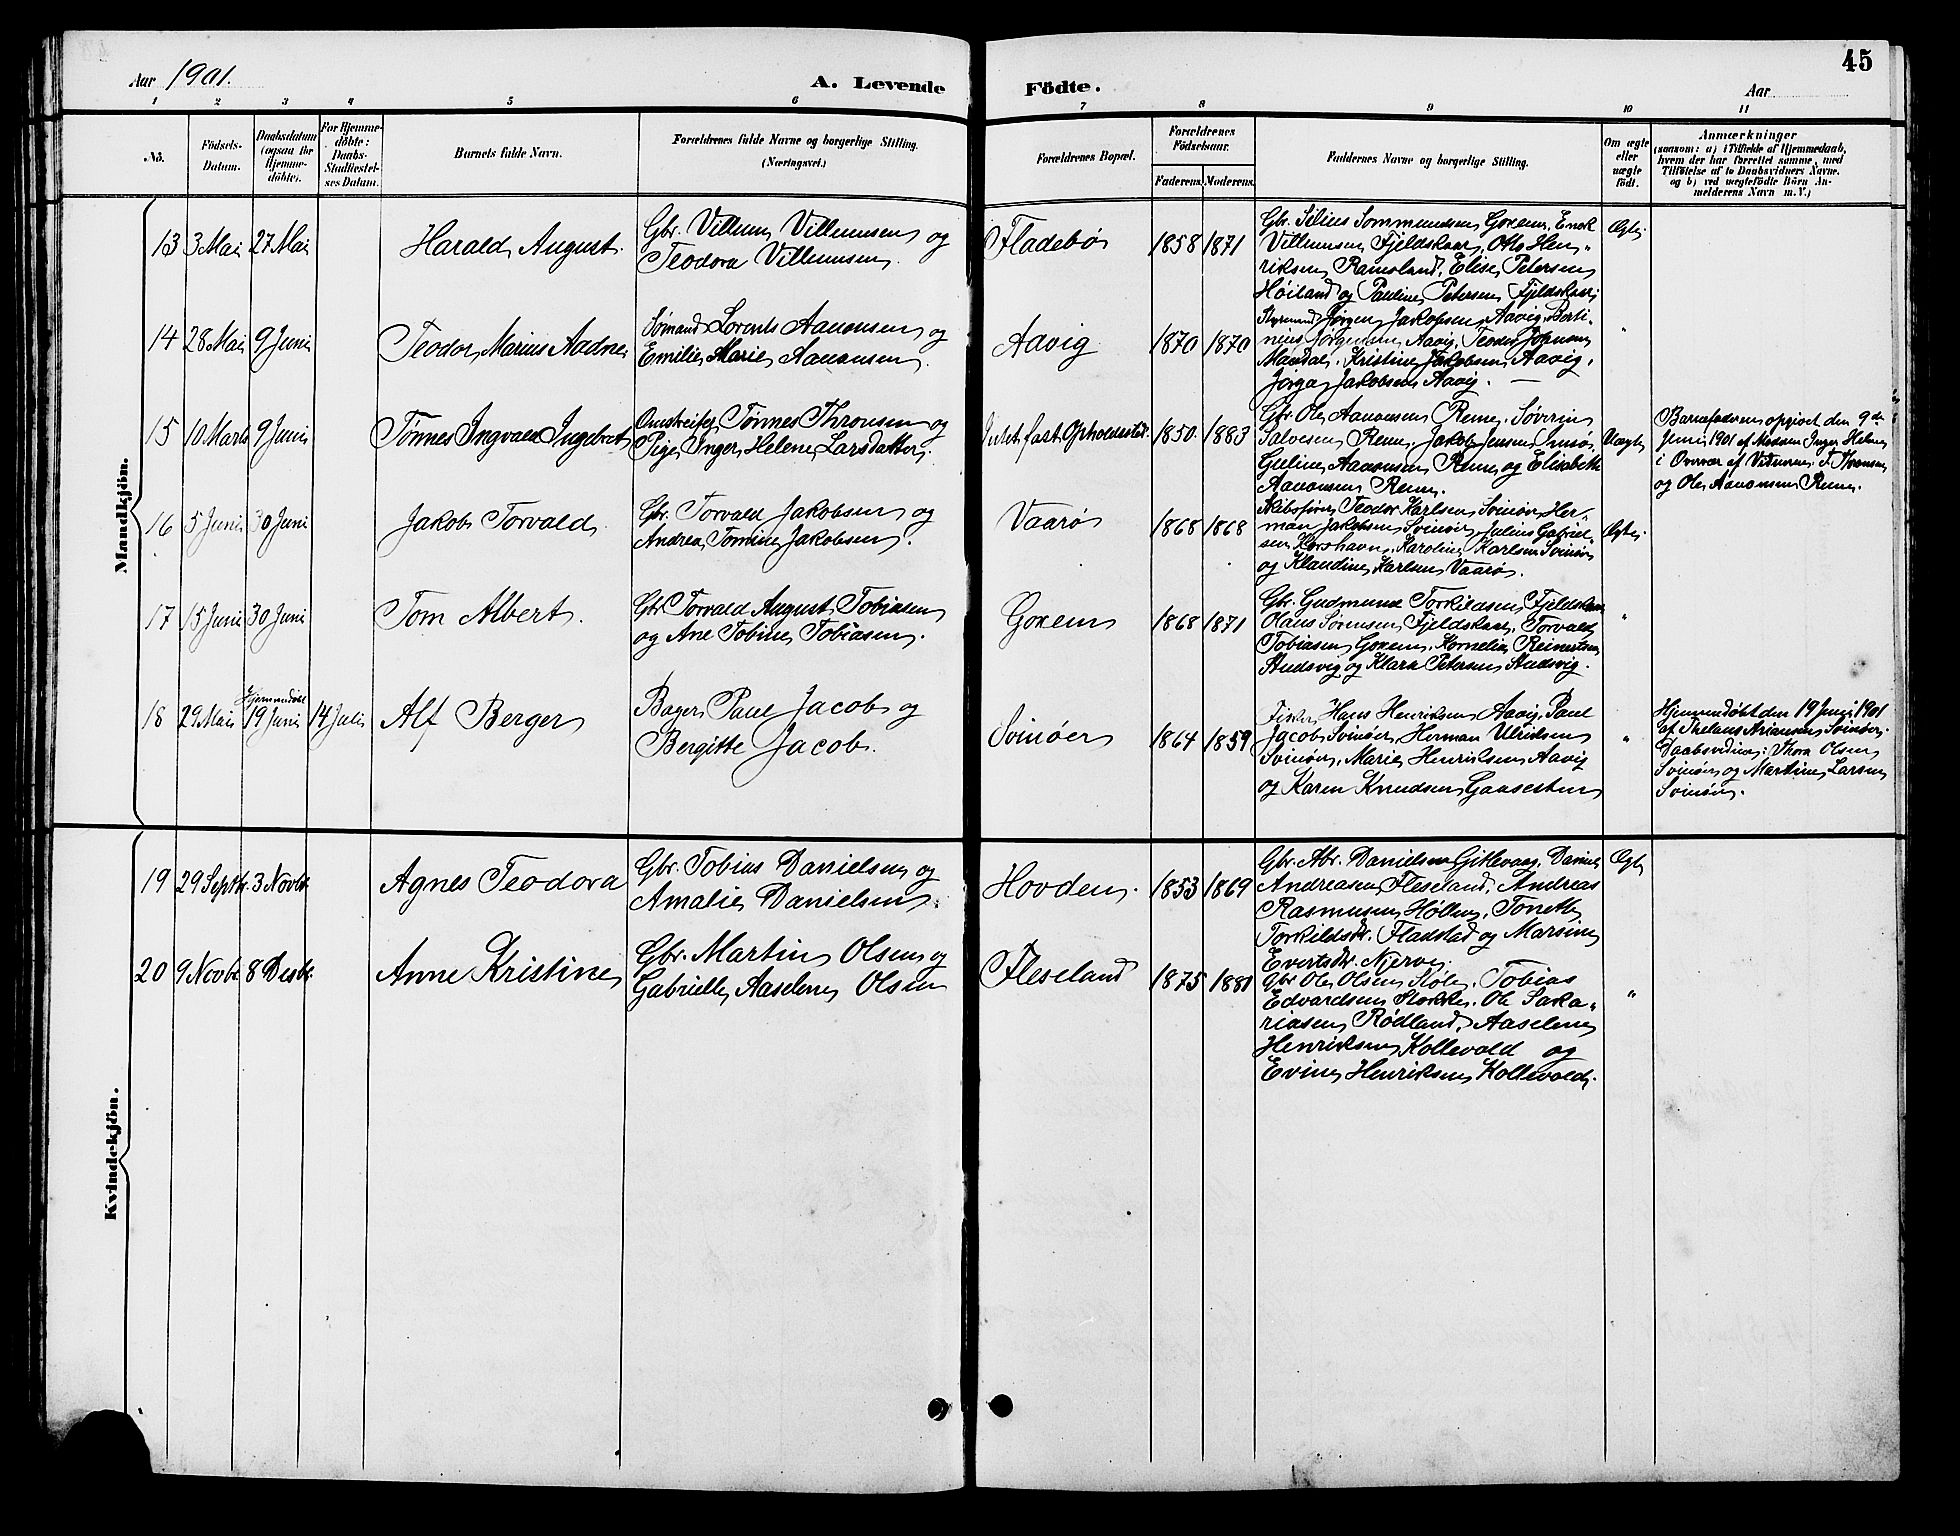 45
Aar 1901.
A. Levende Födte.
Aar
1 2 3 4 5 6 7 8 9 10 11
No.
Födsels-
Datum.
Daabsdatum
(ogsaa for
Hjemme-
døbte).
For Hjemme-
döbte:
Daabs-
Stadfæstel-
ses Datum.
Barnets fulde Navn.
Forældrenes fulde Navne og borgerlige Stilling.
(Næringsvei.)
Forældrenes Bopæl.
Forældrenes
Födselsaar.
Faderens Moderens.
Faddernes Navne og borgerlige Stilling.
Om ægte
eller
uægte
født.
Anmærkninger
(saasom: a) i Tilfælde af Hjemmedaab,
hvem der har forrettet samme, med
Tilföielse af to Daabsvidners Navne.
og b) ved uægtefödte Börn An-
melderens Navn m.V.)
Mandkjön.
13 3 Mai 27 Mai
Harald August.
Gbr. Villum Villumsen og
Teodora Villumsen.
Fladebø
1858 1871
Gbr. Silius Sommundsen Goxem, Enok
Villumsen Fjeldskaar, Otto Hen-
riksen Ramsland, Elise Petersen
Høiland og Pauline Petersen Fjeldskaar
Ægte
14 28 Mai 9 Juni
Teodor Marius Aadne
Sømand Lorents Aanonsen og
Emilie Marie Aanonsen.
Aavig
1870 1870
Styrmand Jørgen Jakobsen Aavig, Berti-
nius Jørgensen Aavig, Teodor Johnsen
Mandal, Kristine Jakobsen Aavig,
Jørga Jakobsen Aavig. —
"
15 10 Marts 9 Juni
Tønnes Ingvald Ingebret
Omstreifer Tønnes Thronsen og
Pige Inger Helene Larsdatter.
Intet fast Opholdssted.
1850. 1883
Gbr. Ole Aanonsen Remme, Søvrin
Salvesen Remme, Jakob Jensen Imsø,
Guline Aanonsen Remme og Elisabeth
Aanonsen Remme.
Uægte
Barnefaderen opgivet den 9de
Juni 1901 af Moderen Inger Helene
i Overvær af Vidnerne T. Thronsen
og Ole Aanonsen Remme.
16 5 Juni 30 Juni
Jakob Torvald
Gbr. Torvald Jakobsen og
Andrea Tomine Jakobsen.
Vaarø
1868 1868
Skibsfører Teodor Karlsen Svinør, Her-
man Jakobsen Svinør, Julius Gabriel-
sen Korshavn, Karoline Karlsen Svinør
og Klaudine Karlsen Vaarø.
Ægte
17 15 Juni 30 Juni
Tom Albert.
Gbr. Torvald August Tobiasen
og Ane Tobine Tobiasen.
Goxem
1868 1871
Gbr. Gudmund Torkildsen Fjeldskaar
Olaus Sørensen Fjeldskaar, Torvald
Tobiasen Goxem, Kornelia Reinertsen
Studsvig og Klara Petersen Studsvig.
"
18 29 Mai Hjemmedøbt
19 Juni 14 Juli
Alf Berger
Bager Paul Jacob og
Bergitte Jacob.
Svinøer
1864 1859
Fisker Hans Henriksen Aavig, Paul
Jacob Svinør, Herman Ulriksen
Svinør, Marie Henriksen Aavig
og Karen Knudsen Gaasesten
"
Hjemmedøbt den 19 Juni 1901
af Thelaus Ariansen Svinør.
Daabsvidner: Thora Olsen
Svinør og Martine Larsen
Svinør.
Kvindekjön.
19 29 Septbr. 3 Novbr
Agnes Teodora
Gbr. Tobias Danielsen og
Amalie Danielsen.
Hovden.
1853 1869
Gbr. Abr. Danielsen Gitlevaag, Daniel
Andreasen Fleseland, Andreas
Rasmusen Høllen, Tonette
Torkildsdr. Fladstad og Marsine
Evertsdr. Njerve.
Ægte
20 9 Novbr 8 Desbr.
Anne Kristine
Gbr. Martin Olsen og
Gabrielle Aaselene Olsen
Fleseland
1875 1881
Gbr Ole Olsen Støle, Tobias
Edvardsen Stokke, Ole Saka-
riasen Rødland, Aaselene
Henriksen Kollevold og
Evine Henriksen Kollevold.
"